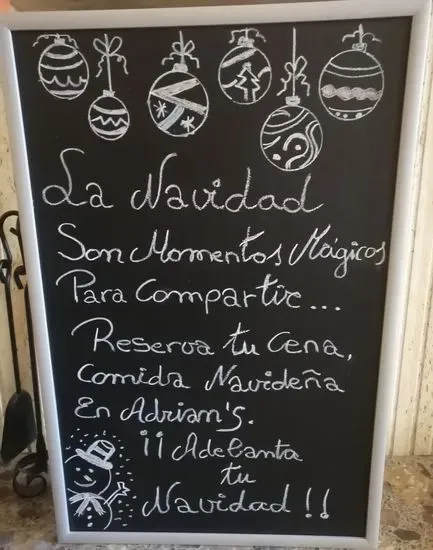 La Navidad
Son Momentos Mágicos
Para Compartir...
Reserva tu Cena,
Comida Navideña
En Adrian's.
¡¡Adelanta
tu
Navidad!!